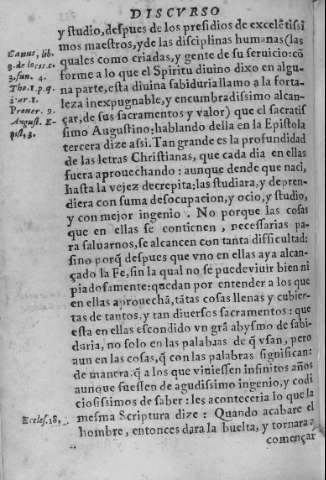 DISCVRSO
y studio, despues de los presidios de excelẽtissi
mos maestros, y de las disciplinas humanas (las
quales como criadas, y gente de su seruicio: cõ
forme a lo que el Spiritu diuino dixo en algu-
na parte, esta diuina sabiduria llamo a la forta-
leza inexpugnable, y encumbradissimo alcan-
çar, de sus sacramentos y valor) que el sacratis
simo Augustino: hablando della en la Epistola
tercera dize assi. Tan grande es la profundidad
de las letras Christianas, que cada dia en ellas
fuera aprouechando: aunque dende que naci,
hasta la vejez decrepita: las studiara, y depren-
diera con suma desocupacion, y ocio, y studio,
y con mejor ingenio. No porque las cosas
que en ellas se contienen, necessarias pa-
ra saluarnos, se alcancen con tanta difficultad:
sino porq̃ despues que vno en ellas aya alcan-
çado la Fe, sin la qual no se puede viuir bien ni
piadosamente: quedan por entender a los que
en ellas aprouechã, tãtas cosas llenas y cubier-
tas de tantos, y tan diuersos sacramentos: que
esta en ellas escondido vn grã abysmo de sabi-
duria, no solo en las palabras de q̃ vsan, pero
aun en las cosas, q̃ con las palabras significan:
de manera: q̃ a los que viuiessen infinitos años
aunque fuessen de agudissimo ingenio, y codi
ciosissimos de saber: les aconteceria lo que la
mesma Scriptura dize: Quando acabare el
hombre, entonces dara la buelta, y tornara a
començar
Canus, lib.
9. de locis. c.
3. sun. 4.
Tho. 1. p. q.
1. ar. 1.
Prouer. 9.
August. E-
pist, 3.
Eccles. 18,